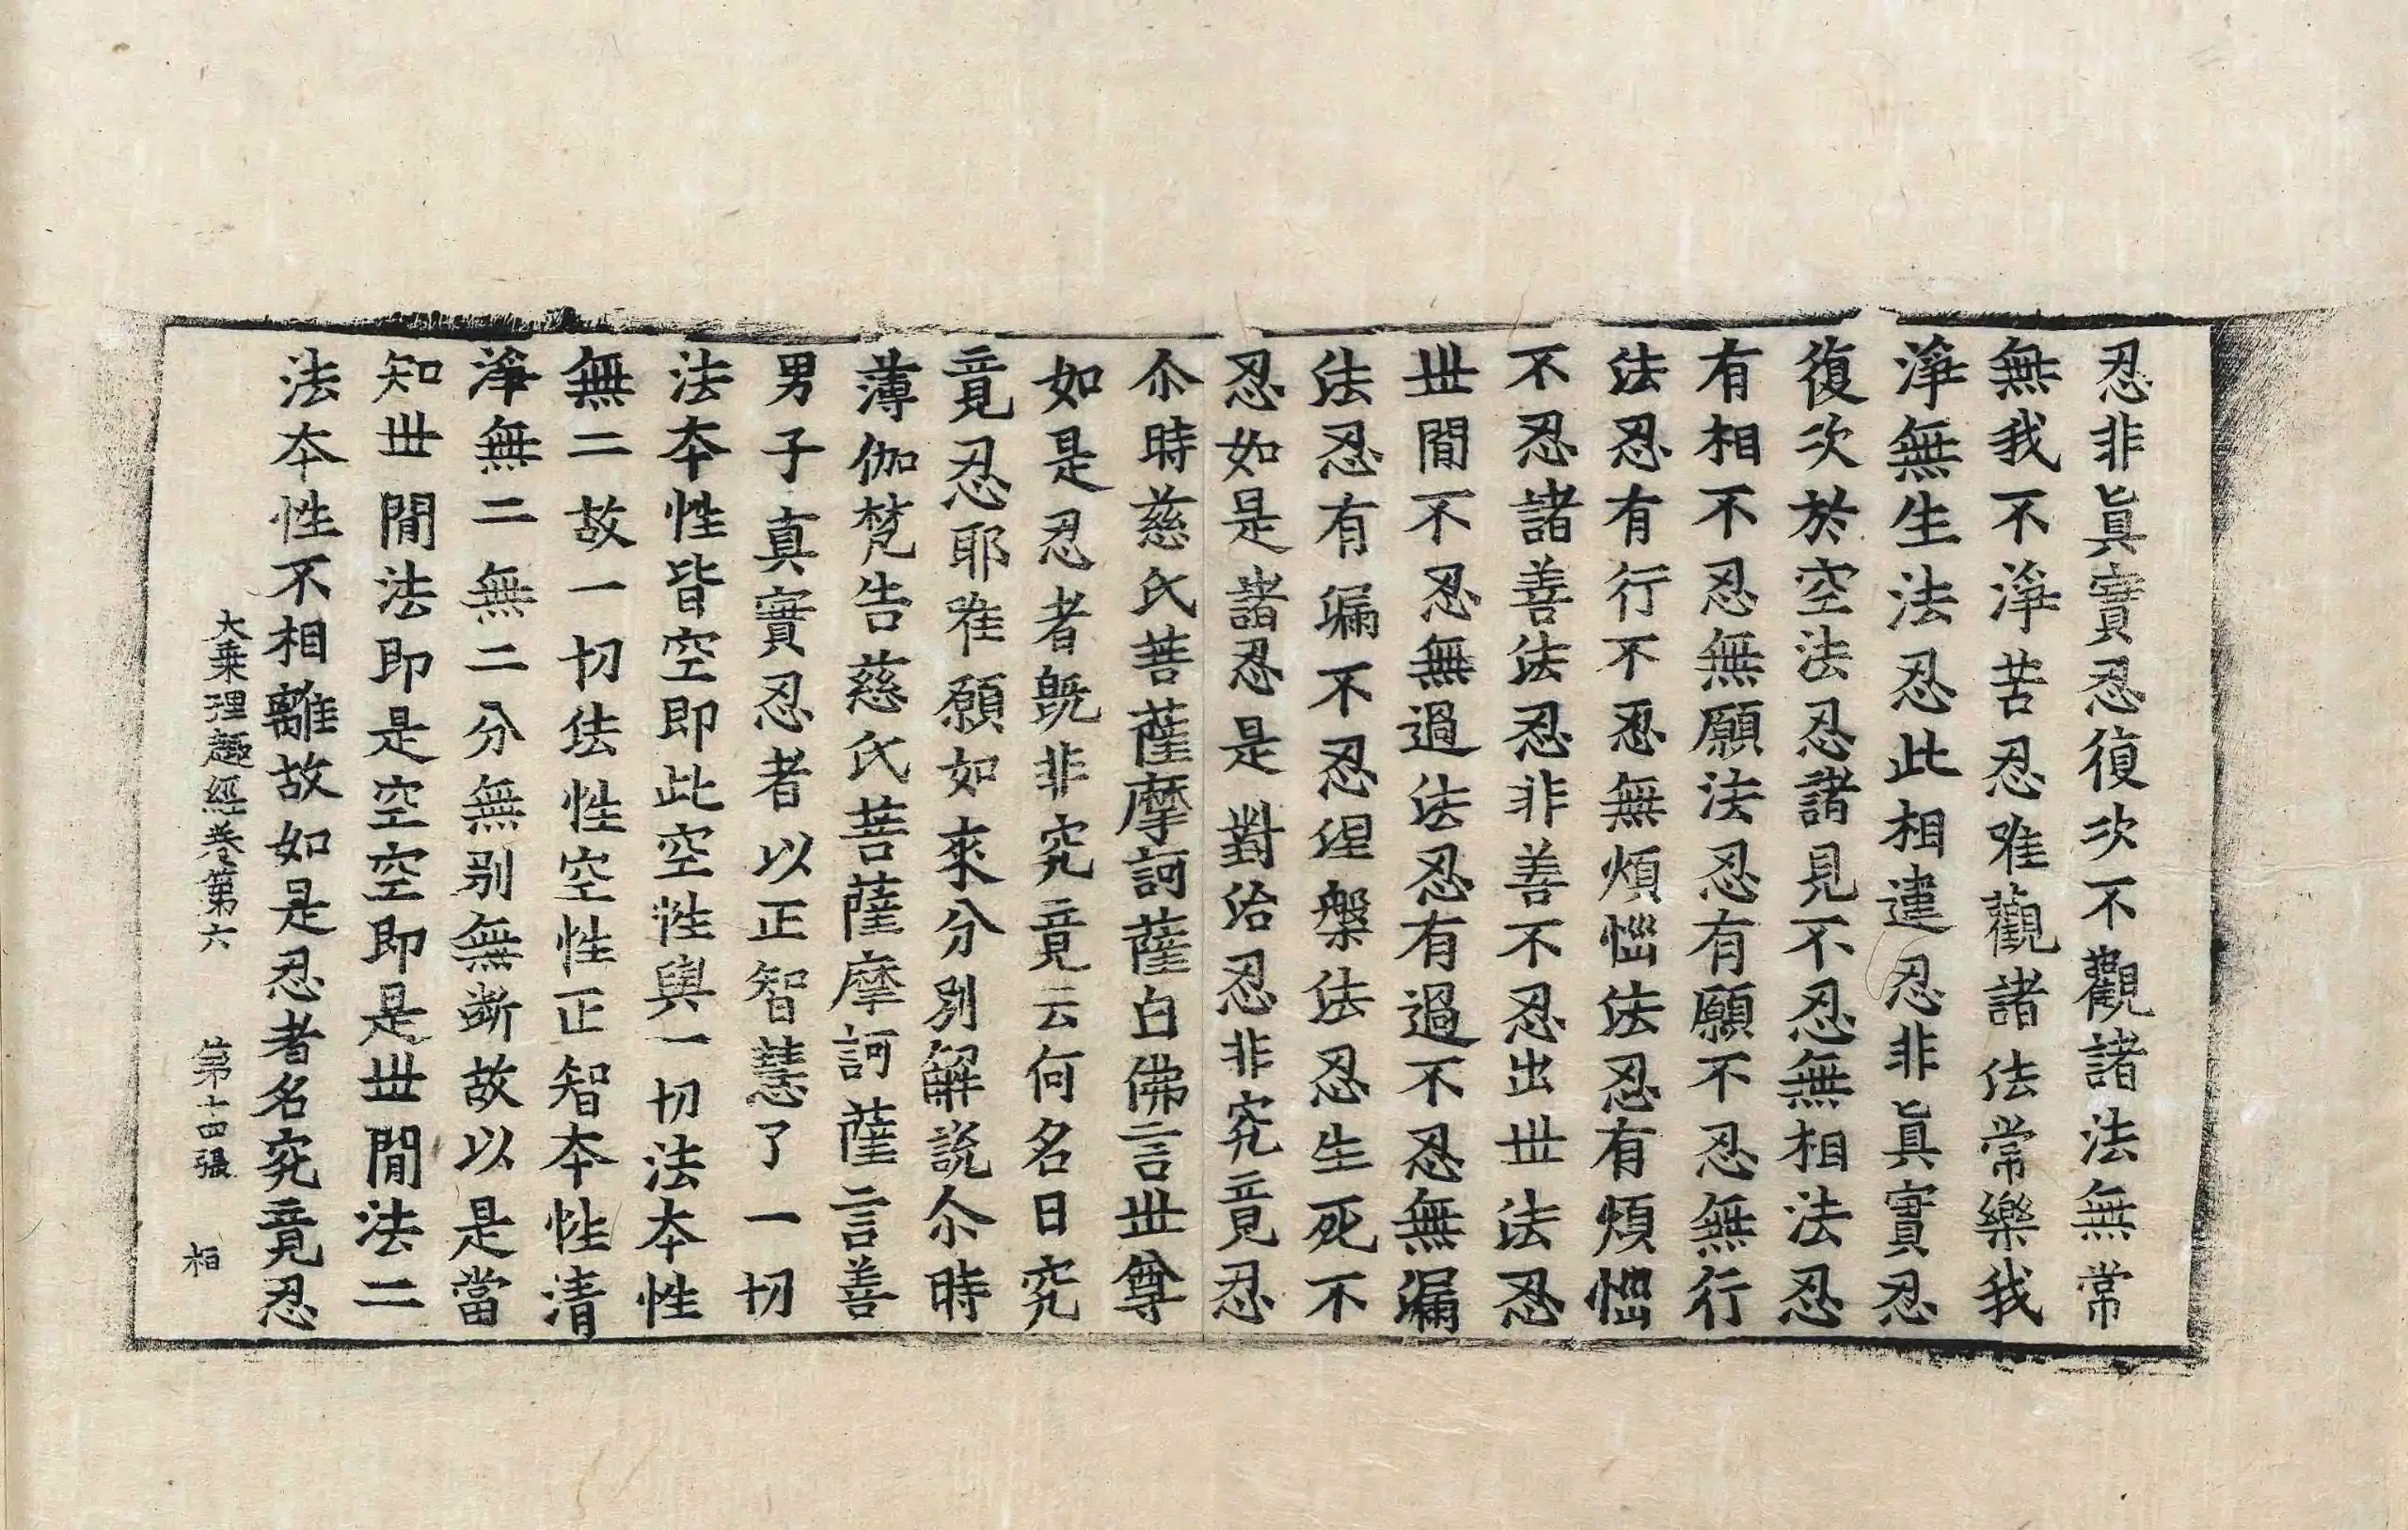 忍非眞實忍復次不觀諸法無常
無我不淨苦忍唯觀諸法常樂我
淨無生法忍此相違忍非眞實忍
復次於空法忍諸見不忍無相法忍
有相不忍無願法忍有願不忍無行
法忍有行不忍無煩惱法忍有煩惱
不忍諸善法忍非善不忍出丗法忍
丗閒不忍無過法忍有過不忍無漏
法忍有漏不忍涅槃法忍生死不
忍如是諸忍是對治忍非究竟忍
尒時慈氏菩薩摩訶薩白佛言丗尊
如是忍者旣非究竟云何名曰究
竟忍耶唯願如來分別解說尒時
薄伽梵告慈氏菩薩摩訶薩言善
男子真實忍者以正智慧了一切
法夲性皆空即此空性與一切法夲性
無二故一切法性空性正智夲性清
淨無二無二分無别無断故以是當
知丗閒法即是空空即是丗閒法二
法夲性不相離故如是忍者名究竟忍
大乗理趣經卷第六 第十四張 栢